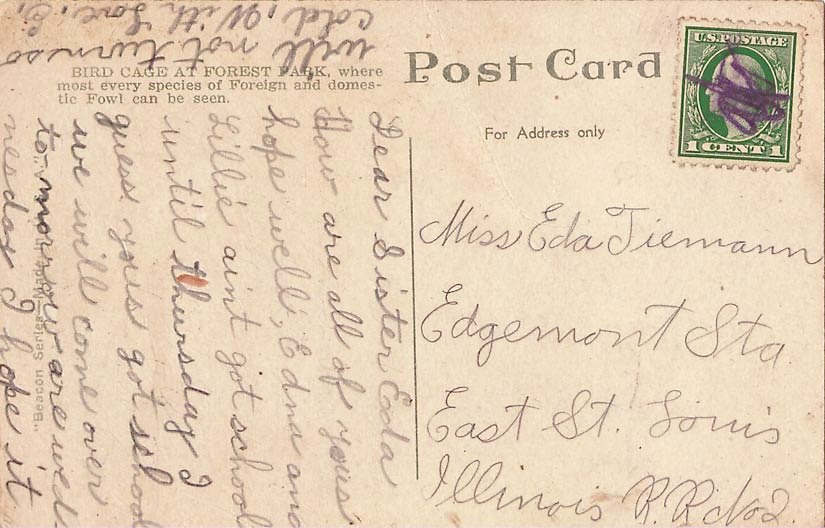 BIRD CAGE AT FOREST PARK, where
most every species of Foreign and domes-
tic Fowl can be seen.
Post Card
For Address only
U.S. POSTAGE
1 CENT 1
Miss Eda Tiemann
Edgemont Sta
East St. Louis
Illinois R.R. No 2
Dear Sister Eda
How are all of yous
hope well, Edna and
Lillie aint got school
until thursday I
guess yous got school
we will come over
to morrow are wed
nesday I hope it
will not turn so
cold, With Love, E.
"Beacon Series" Made in